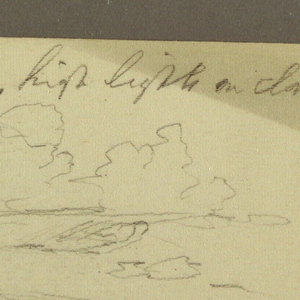 , high lights on clo